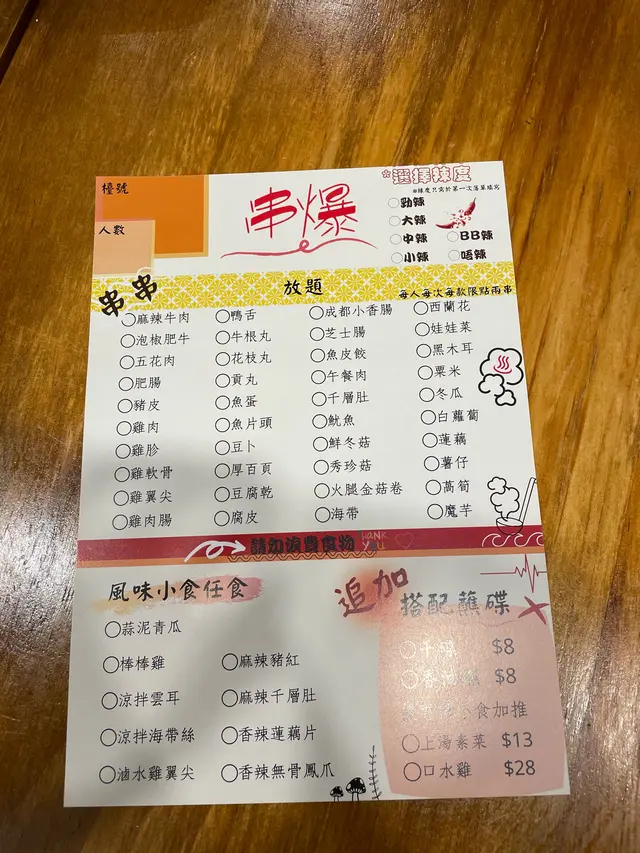 檯號
人數
串爆
*選擇辣度
*辣度只需於第一次落單填寫
勁辣
大辣
中辣 BB辣
小辣 唔辣
串串
放題
每人每次每款限點兩串
麻辣牛肉 鴨舌 成都小香腸 西蘭花
泡椒肥牛 牛根丸 芝士腸 娃娃菜
五花肉 花枝丸 魚皮餃 黑木耳
肥腸 貢丸 午餐肉 粟米
豬皮 魚蛋 千層肚 冬瓜
雞肉 魚片頭 魷魚 白蘿蔔
雞胗 豆卜 鮮冬菇 蓮藕
雞軟骨 厚百頁 秀珍菇 薯仔
雞翼尖 豆腐乾 火腿金菇卷 萵筍
雞肉腸 腐皮 海帶 魔芋
請勿浪費食物 THANK YOU
風味小食任食
蒜泥青瓜
棒棒雞 麻辣豬紅
涼拌雲耳 麻辣千層肚
涼拌海帶絲 香辣蓮藕片
滷水雞翼尖 香辣無骨鳳爪
追加 搭配蘸碟
$8
$8
食加推
上湯素菜 $13
口水雞 $28